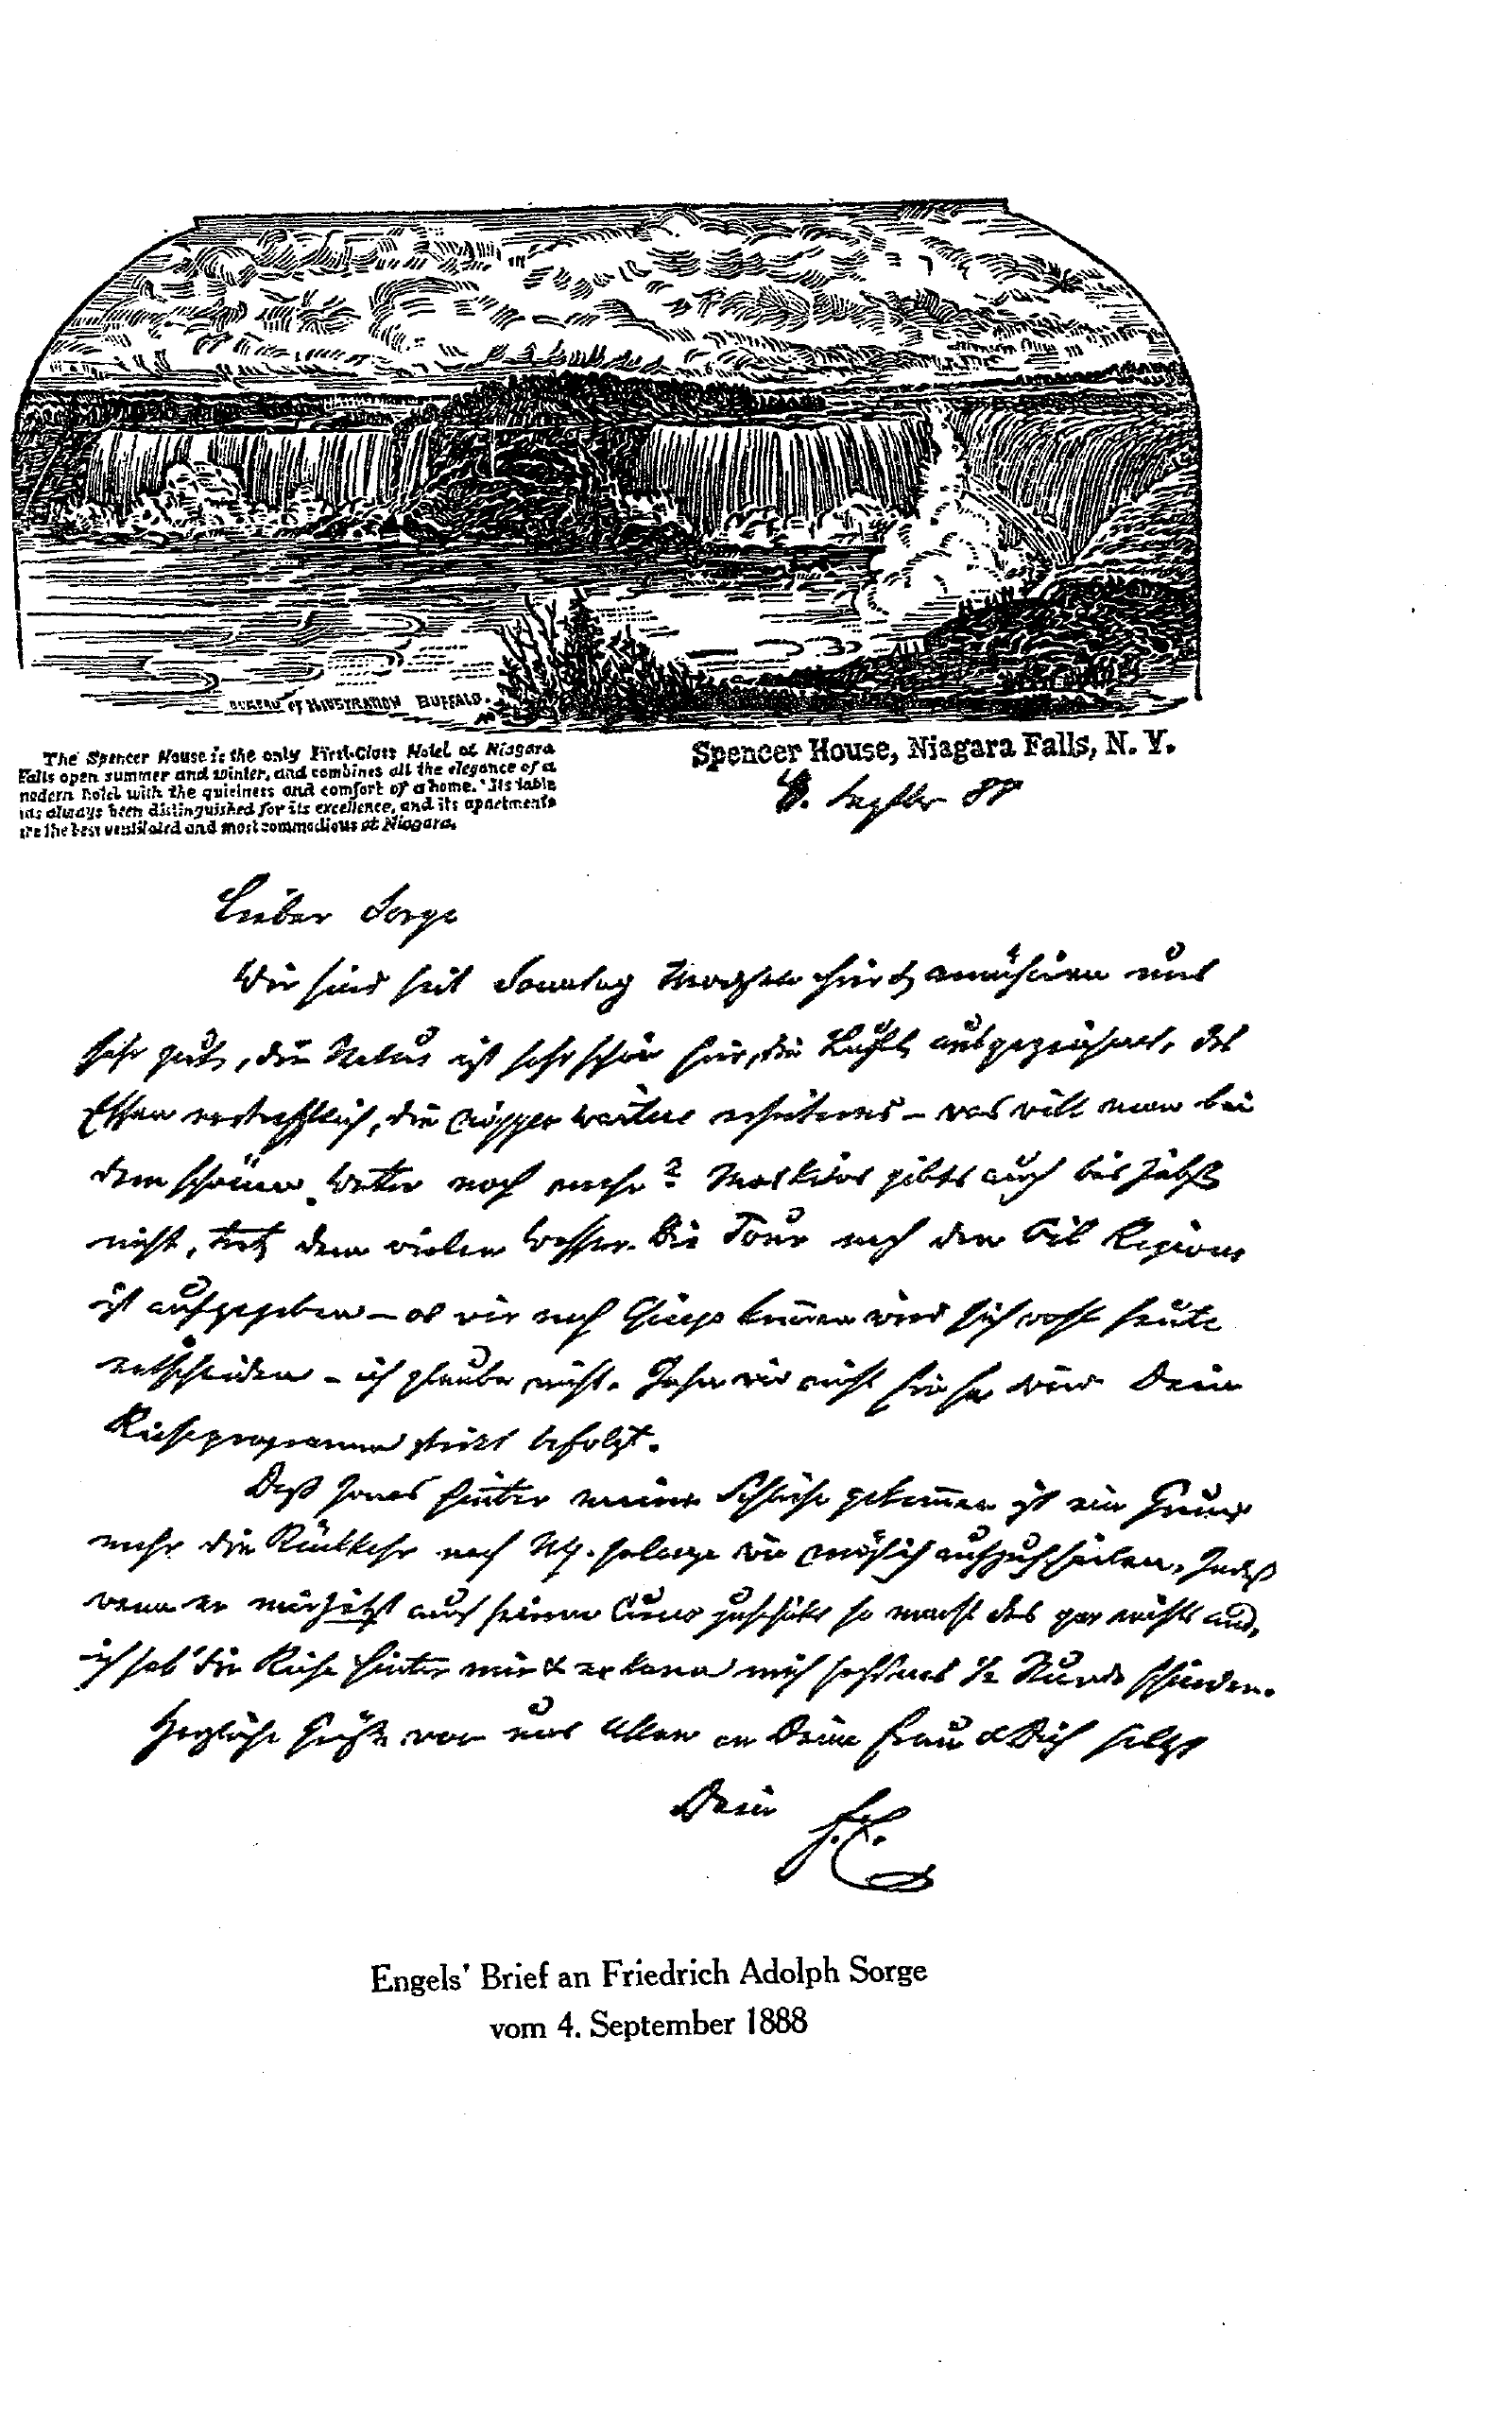 BUREAU OF ILLUSTRATION BUFFALO.
The Spencer House is the only First-Class Hotel at Niagara
Falls open summer and winter, and combines all the elegance of a
modern hotel with the quietness and comfort of a home. Its table
has always been distinguished for its excellence, and its apartments
are the best ventilated and most commodious at Niagara.
Spencer House, Niagara Falls, N. Y.
4. Septber 88
Lieber Sorge
Wir sind seit Sonntag Morgen hier & amüsiren uns
sehr gut, die Natur ist sehr schön hier, die Luft ausgezeichnet, das
Essen vortrefflich, die Nigger waiters erheiternd – was will man bei
dem schönen Wetter noch mehr? Moskitos gibts auch bis jetzt
nicht, trotz dem vielen Wasser. Die Tour nach den Oil Regions
ist aufgegeben – ob wir nach kommen wird sich wohl heute
entscheiden – ich glaube nicht. Gehn wir nicht hin so wird Dein
Reiseprogramm strikt befolgt.
Daß Jonas hinter meine Schliche gekommen ist ein Grund
mehr die Rückkehr nach NY. solange wie möglich aufzuschieben. Indeß
wenn er mir jetzt auch seinen zuschickt so macht das gar nichts aus,
ich hab die Reise hinter mir & er kann mich höchstens ½ Stunde schinden.
Herzliche Grüße von uns Allen an Deine Frau & Dich selbst
Dein F.E.
Engels' Brief an Friedrich Adolph Sorge
vom 4. September 1888